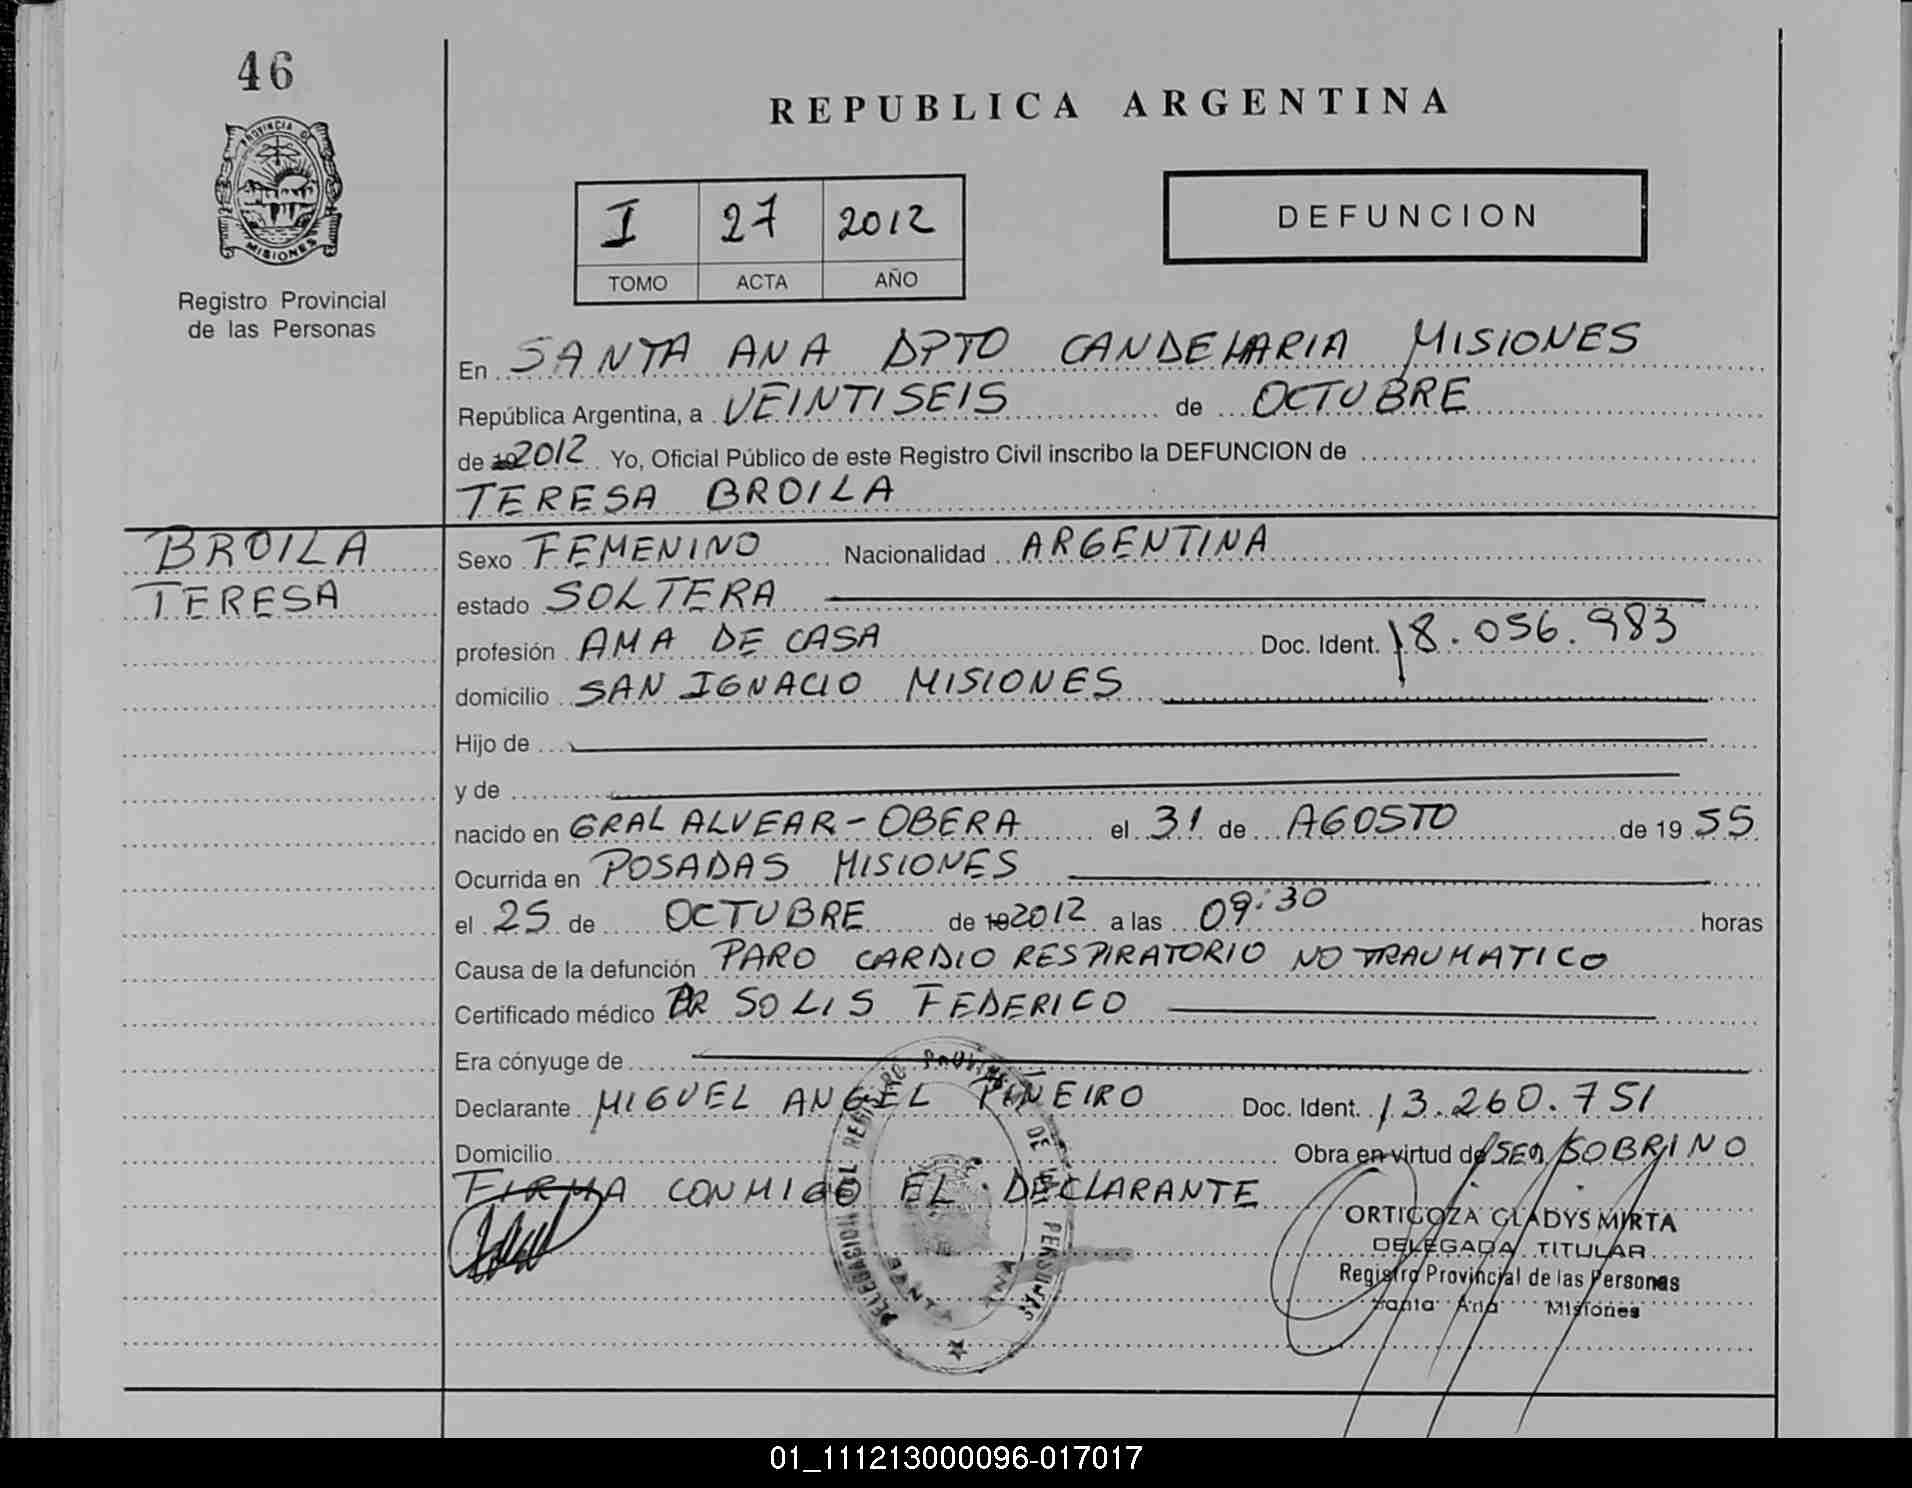 46
REPUBLICA ARGENTINA
PROVINCIA DE
MISIONES
Registro Provincial
de las Personas
I 27 2012
TOMO ACTA AÑO
DEFUNCION
En SANTA ANA DPTO CANDELARIA MISIONES
República Argentina, a VEINTISEIS de OCTUBRE
de 19 2012 Yo, Oficial Público de este Registro Civil inscribo la DEFUNCION de
TERESA BROILA
BROILA
TERESA
Sexo FEMENINO Nacionalidad ARGENTINA
estado SOLTERA
profesión AMA DE CASA Doc. Ident. 18.056.983
domicilio SAN IGNACIO MISIONES
Hijo de
y de
nacido en GRAL ALVEAR - OBERA el 31 de AGOSTO de 19 55
Ocurrida en POSADAS MISIONES
el 25 de OCTUBRE de 19 2012 a las 09:30 horas
Causa de la defunción PARO CARDIO RESPIRATORIO NO TRAUMATICO
Certificado médico DR SOLIS FEDERICO
Era cónyuge de
Declarante MIGUEL ANGEL PIÑEIRO Doc. Ident. 13.260.751
Domicilio Obra en virtud de SER SOBRINO
FIRMA CONMIGO EL DECLARANTE
DELEGACION DEL REGISTRO PROVINCIAL DE LAS PERSONAS
SANTA ANA
ORTIGOZA GLADYS MIRTA
DELEGADA TITULAR
Registro Provincial de las Personas
Santa Ana Misiones
01_111213000096-017017